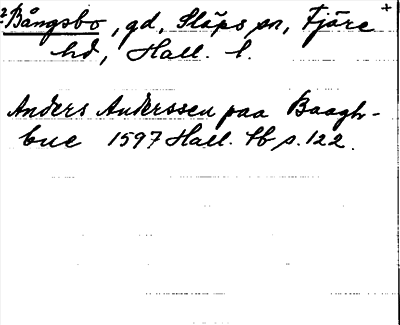 2 Bångsbo, gd, Släps sn, Fjäre +
hd, Hall. l.
Anders Anderssen paa Baagh-
bue 1597 Hall. lb s. 122.